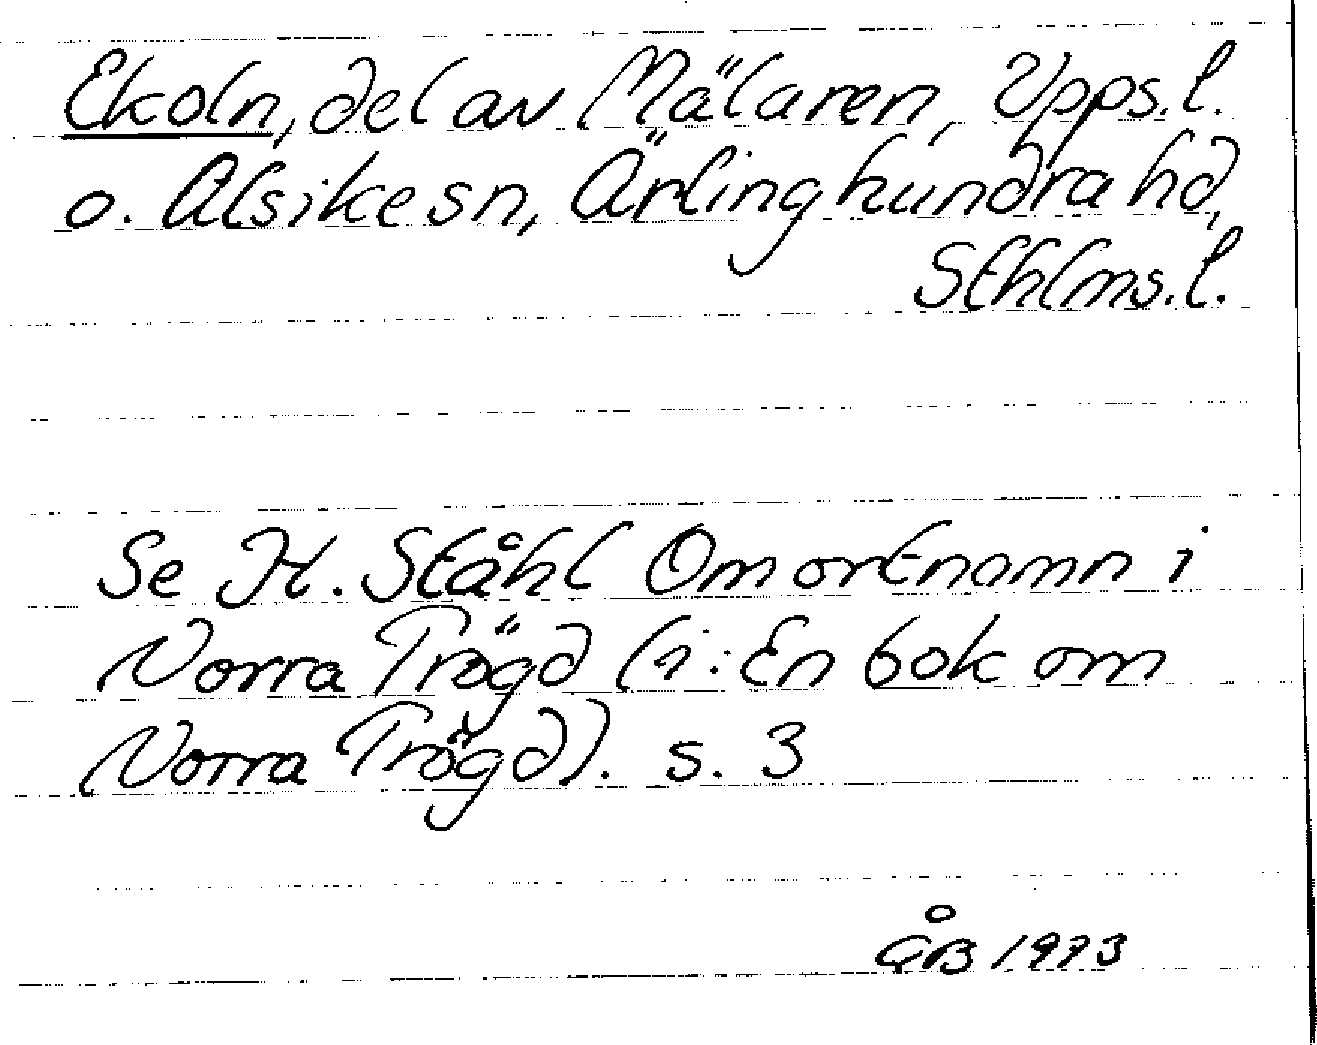 Ekoln, del av Mälaren, Upps.l.
o. Alsike sn, Ärlinghundra hd,
Sthlms.l.
Se H. Ståhl Om ortnamn i
Norra Trögd (i: En bok om
Norra Trögd). s. 3
ÅB 1973